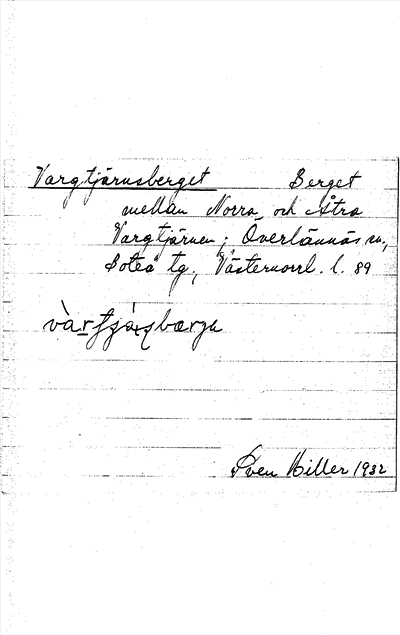 Vargtjärnsberget Berget
mellan Norra och Åtra
Vargtjärnen; Överlännäs sn,
Boteå tg., Västernorrl. l. 89
Sven Hiller 1932